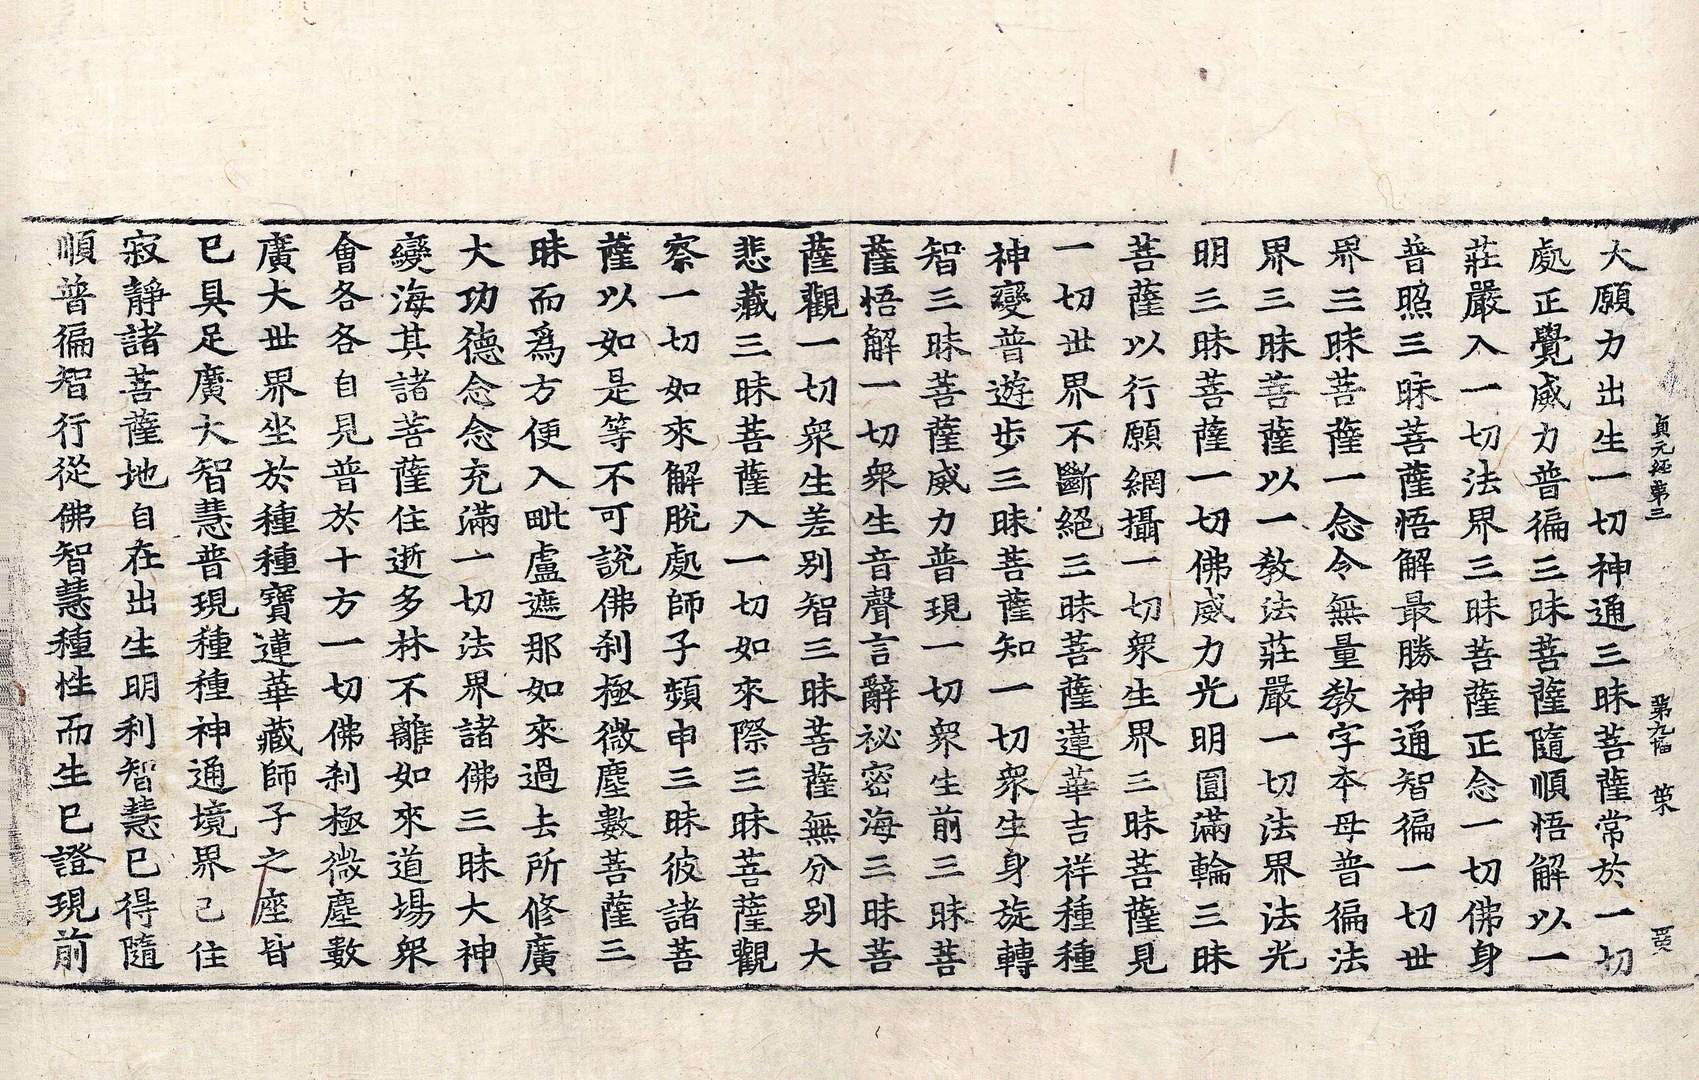 貞元経第三 第九幅
大願力出生一切神通三昧菩薩常於一切
處正覺威力普徧三昧菩薩隨順悟解以一
莊嚴入一切法界三昧菩薩正念一切佛身
普照三昧菩薩悟解最勝神通智徧一切世
界三昧菩薩一念令無量教字本母普徧法
界三昧菩薩以一教法莊嚴一切法界法光
明三昧菩薩一切佛威力光明圓滿輪三昧
菩薩以行願網攝一切衆生界三昧菩薩見
一切世界不斷絕三昧菩薩蓮華吉祥種種
神變普遊步三昧菩薩知一切衆生身旋轉
智三昧菩薩威力普現一切衆生前三昧菩
薩悟解一切衆生音聲言辭祕密海三昧菩
薩觀一切衆生差別智三昧菩薩無分別大
悲藏三昧菩薩入一切如來際三昧菩薩觀
察一切如來解脫處師子頻申三昧彼諸菩
薩以如是等不可說佛剎極微塵數菩薩三
昧而爲方便入毗盧遮那如來過去所修廣
大功德念念充滿一切法界諸佛三昧大神
變海其諸菩薩住逝多林不離如來道場衆
會各各自見普於十方一切佛剎極微塵數
廣大世界坐於種種寶蓮華藏師子之座皆
已具足廣大智慧普現種種神通境界已住
寂靜諸菩薩地自在出生明利智慧已得隨
順普徧智行從佛智慧種性而生已證現前